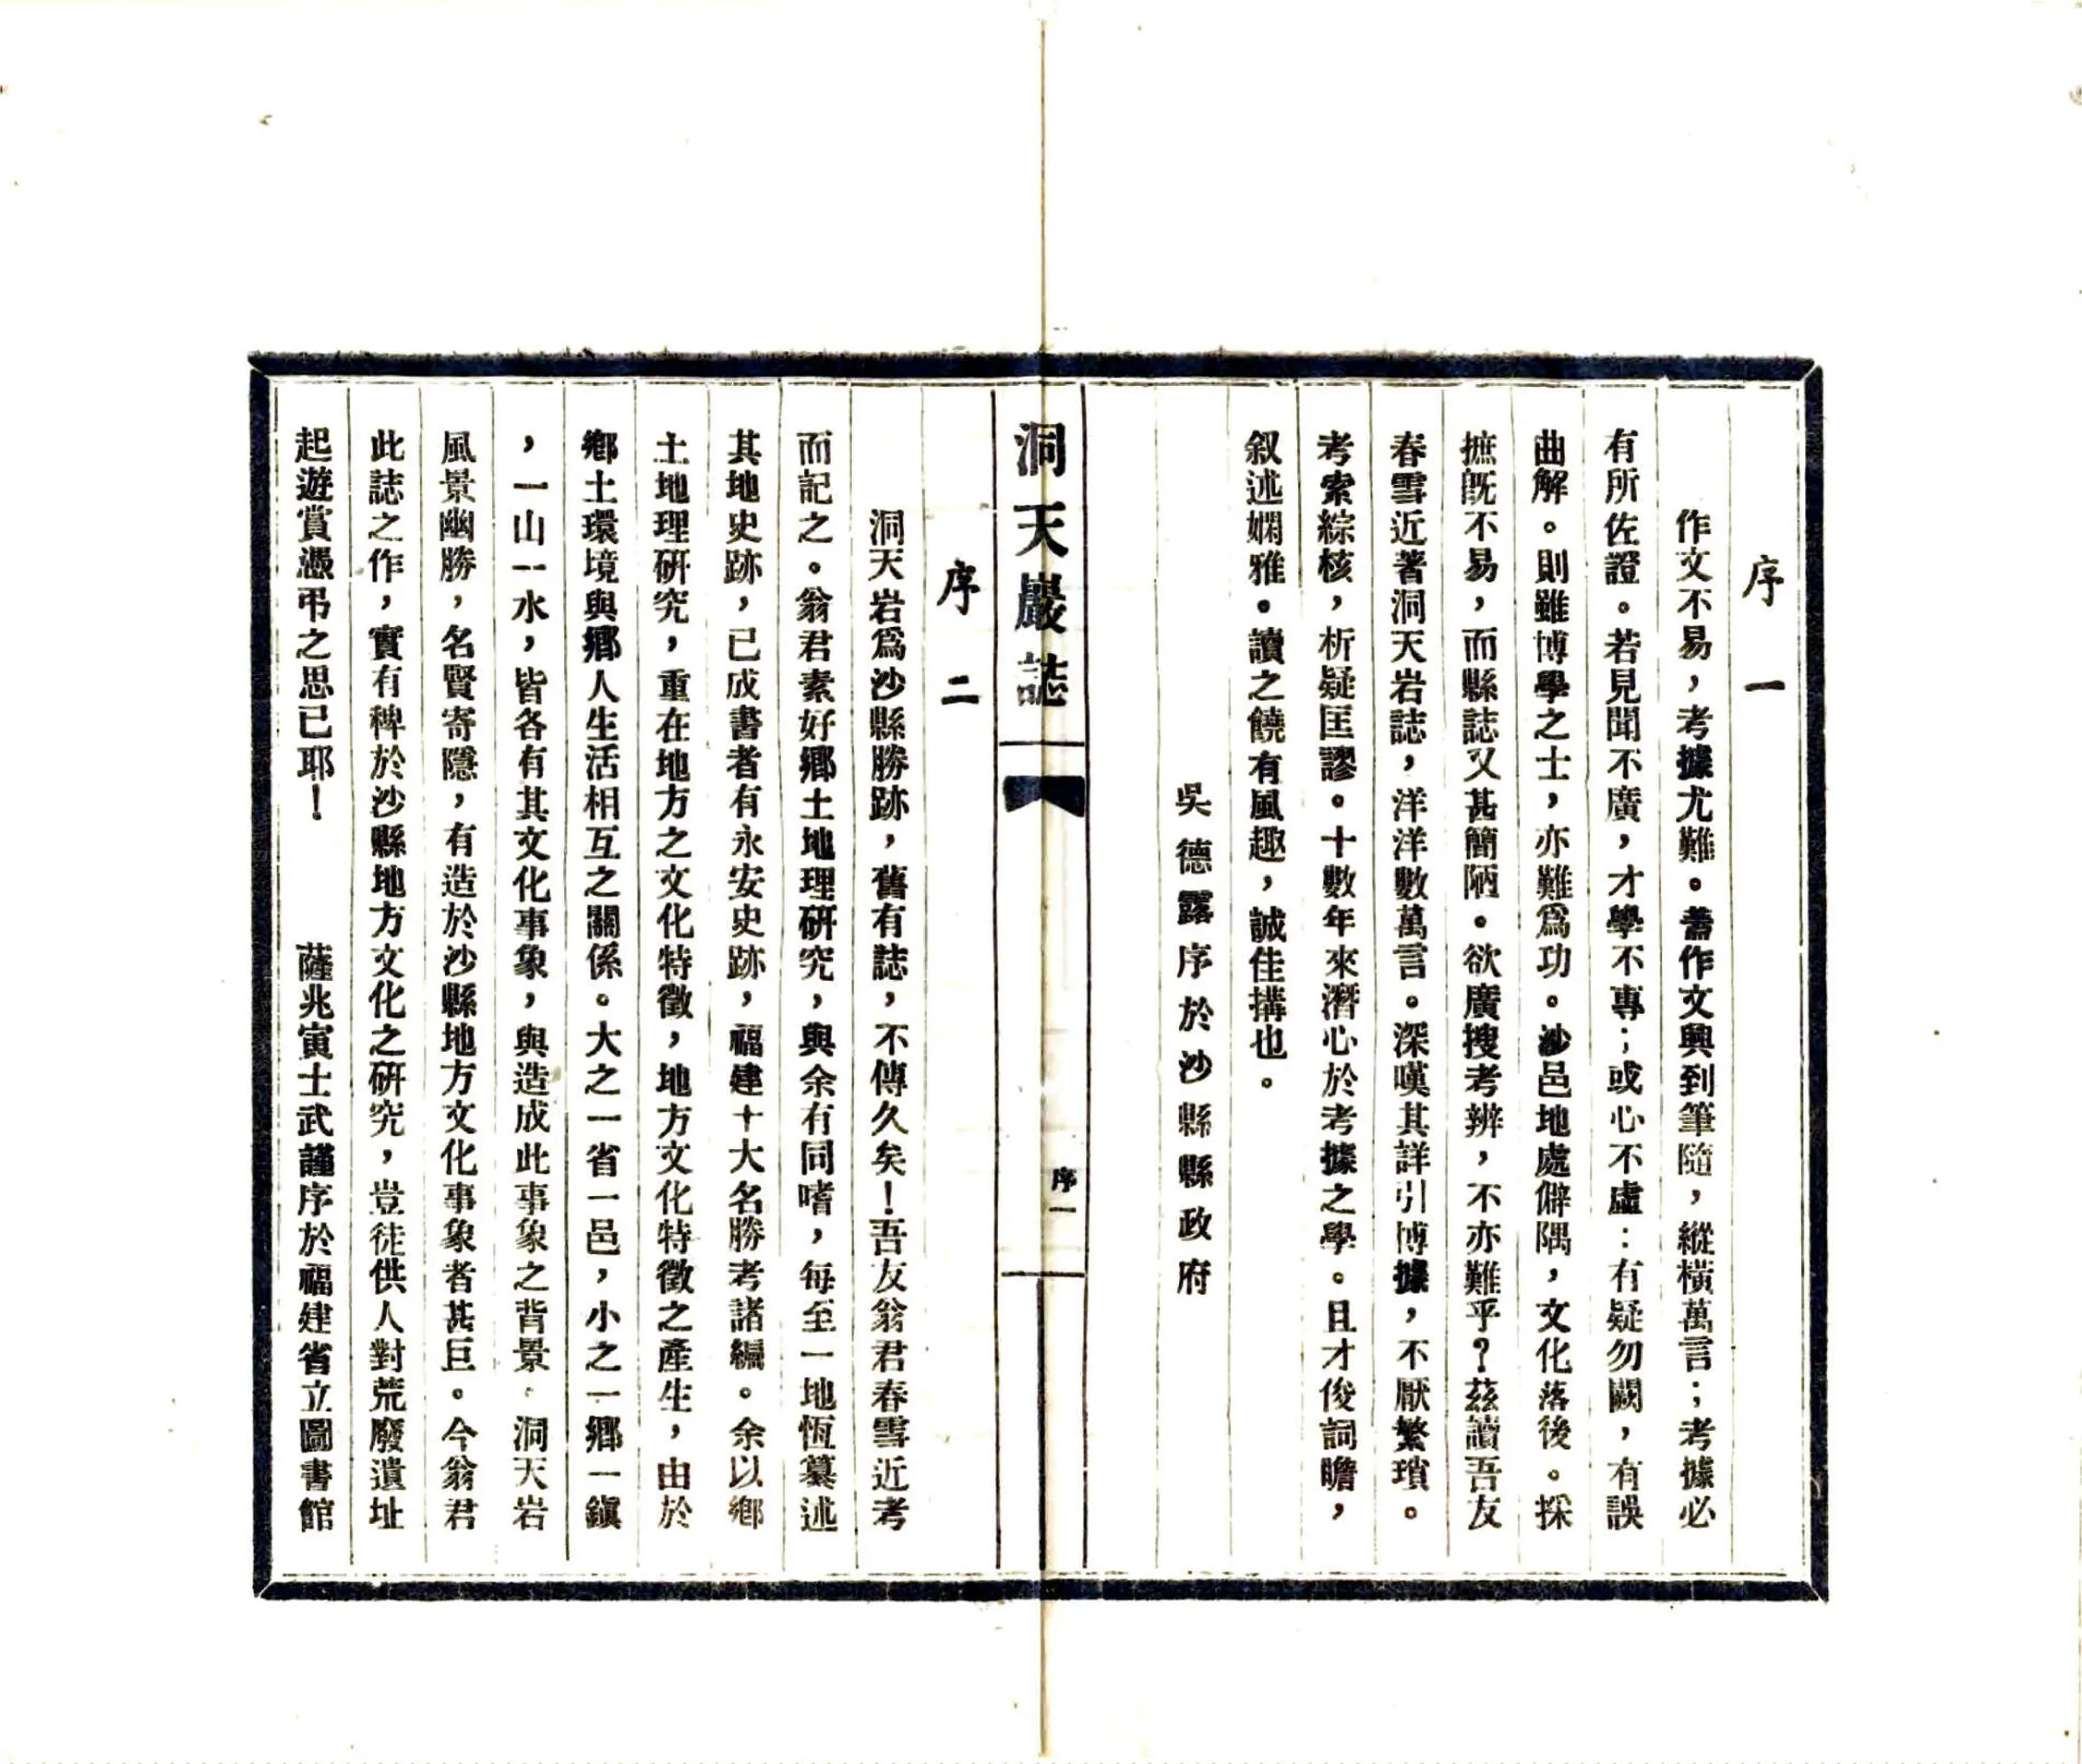 序一
作文不易，考據尤難。善作文興到筆隨，縱橫萬言；考據必
有所佐證。若見聞不廣，才學不專；或心不虛：有疑勿闕，有誤
曲解。則雖博學之士，亦難爲功。沙邑地處僻隅，文化落後。採
摭既不易，而縣誌又甚簡陋。欲廣搜考辨，不亦難乎？茲讀吾友
春雪近著洞天岩誌，洋洋數萬言。深嘆其詳引博據，不厭繁瑣。
考索綜核，析疑匡謬。十數年來潛心於考據之學。且才俊詞瞻，
叙述嫻雅。讀之饒有風趣，誠佳搆也。
吳德露序於沙縣縣政府
洞天巖誌
序一
序二
洞天岩爲沙縣勝跡，舊有誌，不傳久矣！吾友翁君春雪近考
而記之。翁君素好鄉土地理研究，與余有同嗜，每至一地恆纂述
其地史跡，已成書者有永安史跡，福建十大名勝考諸編。余以鄉
土地理研究，重在地方之文化特徵，地方文化特徵之產生，由於
鄉土環境與鄉人生活相互之關係。大之一省一邑，小之一鄉一鎭
，一山一水，皆各有其文化事象，與造成此事象之背景。洞天岩
風景幽勝，名賢寄隱，有造於沙縣地方文化事象者甚巨。今翁君
此誌之作，實有稗於沙縣地方文化之研究，豈徒供人對荒廢遺址
起遊賞憑弔之思已耶！　　薩兆寅士武謹序於福建省立圖書館